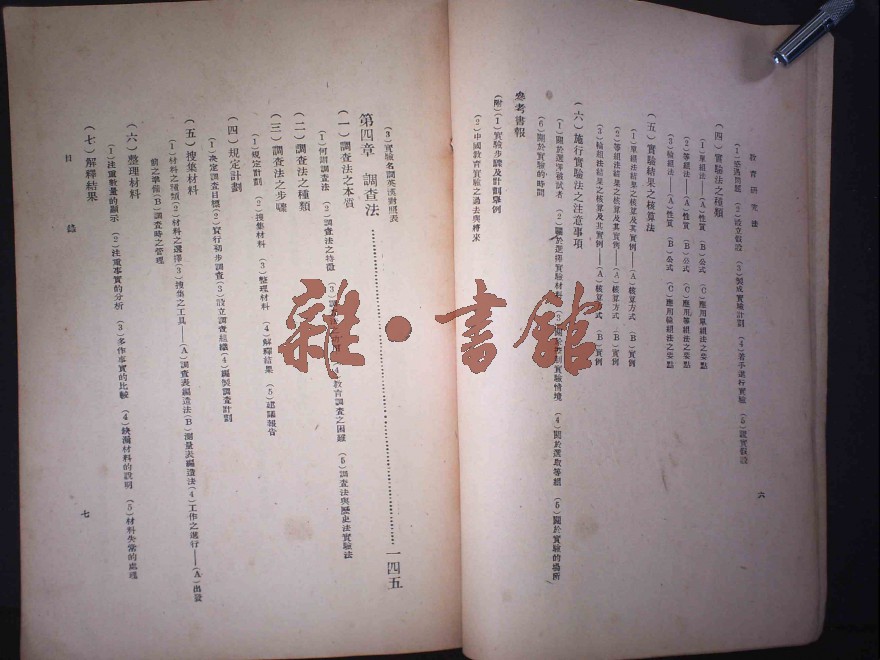 教育研究法
(1)感遇問題 (2)設立假設 (3)製成實驗計劃 (4)著手進行實驗 (5)證實假設
(四)實驗法之種類
(1)單組法——(A)性質 (B)公式 (C)應用單組法之要點
(2)等組法——(A)性質 (B)公式 (C)應用等組法之要點
(3)輪組法——(A)性質 (B)公式 (C)應用輪組法之要點
(五)實驗結果之核算法
(1)單組法結果之核算及其實例——(A)核算方式 (B)實例
(2)等組法結果之核算及其實例——(A)核算方式 (B)實例
(3)輪組法結果之核算及其實例——(A)核算方式 (B)實例
(六)施行實驗法之注意事項
(1)關於選擇被試者 (2)關於選擇實驗材料 (3)關於 實驗情境 (4)關於選取等組 (5)關於實驗的場所
(6)關於實驗的時間
參考書報
(附)(1)實驗步驟及計劃舉例
(2)中國教育實驗之過去與將來
六
(3)實驗名詞英漢對照表
第四章 調查法……………………一四五
(一)調查法之本質
(1)何謂調查法 (2)調查法之特徵 (3)調 (4)教育調查之困難 (5)調查法與歷史法實驗法
(二)調查法之種類
(三)調查法之步驟
(1)規定計劃 (2)搜集材料 (3)整理材料 (4)解釋結果 (5)建議報告
(四)規定計劃
(1)決定調查目標(2)實行初步調查(3)設立調查組織(4)編製調查計劃
(五)搜集材料
(1)材料之種類(2)材料之選擇(3)搜集之工具——(A)調查表編造法(B)測量表編造法(4)工作之進行——(A)出發
前之準備(B)調查時之管理
(六)整理材料
(1)注重數量的顯示 (2)注重事實的分析 (3)多作事實的比較 (4)缺漏材料的說明 (5)材料失常的處理
(七)解釋結果
目錄
七
雜·書館